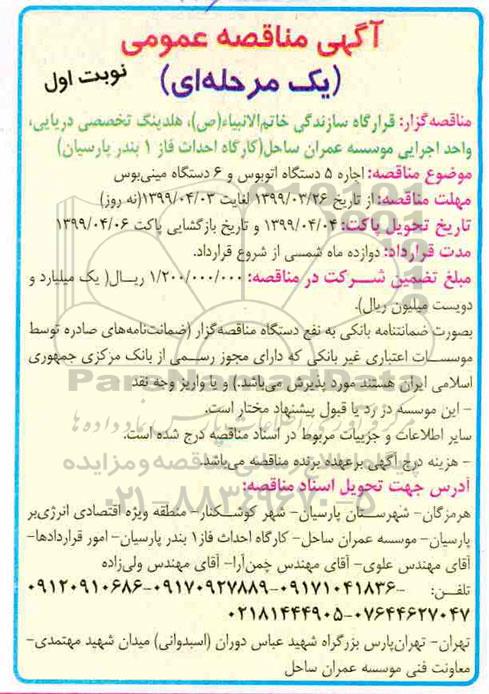 آگهی مناقصه عمومی
(یک مرحله‌ای)
نوبت اول
مناقصه‌گزار: قرارگاه سازندگی خاتم‌الانبیاء(ص)، هلدینگ تخصصی دریایی،
واحد اجرایی موسسه عمران ساحل(کارگاه احداث فاز ۱ بندر پارسیان)
موضوع مناقصه: اجاره ۵ دستگاه اتوبوس و ۶ دستگاه مینی‌بوس
مهلت مناقصه: از تاریخ ۱۳۹۹/۰۳/۲۶ لغایت ۱۳۹۹/۰۴/۰۳(نه روز)
تاریخ تحویل پاکت: ۱۳۹۹/۰۴/۰۴ و تاریخ بازگشایی پاکت ۱۳۹۹/۰۴/۰۶
مدت قرارداد: دوازده ماه شمسی از شروع قرارداد.
مبلغ تضمین شرکت در مناقصه: ۱/۲۰۰/۰۰۰/۰۰۰ ریال( یک میلیارد و
دویست میلیون ریال).
بصورت ضمانتنامه بانکی به نفع دستگاه مناقصه‌گزار (ضمانت‌نامه‌های صادره توسط
موسسات اعتباری غیر بانکی که دارای مجوز رسمی از بانک مرکزی جمهوری
اسلامی ایران هستند مورد پذیرش می‌باشد.) و یا واریز وجه نقد
- این موسسه در رد یا قبول پیشنهاد مختار است.
سایر اطلاعات و جزییات مربوط در اسناد مناقصه درج شده است.
- هزینه درج آگهی برعهده برنده مناقصه می‌باشد.
آدرس جهت تحویل اسناد مناقصه:
هرمزگان- شهرستان پارسیان- شهر کوشکنار- منطقه ویژه اقتصادی انرژی‌بر
پارسیان- موسسه عمران ساحل- کارگاه احداث فاز۱ بندر پارسیان- امور قراردادها-
آقای مهندس علوی- آقای مهندس چمن‌آرا- آقای مهندس ولی‌زاده
تلفن: ۰۹۱۲۰۹۱۰۶۸۶-۰۹۱۷۰۹۲۷۸۸۹-۰۹۱۷۱۰۴۱۸۳۶-
۰۲۱۸۱۴۴۴۹۰۵-۰۷۶۴۴۶۲۷۰۴۷
تهران- تهران‌پارس بزرگراه شهید عباس دوران (اسبدوانی) میدان شهید مهتمدی-
معاونت فنی موسسه عمران ساحل
ParsNamadData
پایگاه اطلاع رسانی مناقصه و مزایده
۰۲۱-۸۸۳۴۹۶۷۰-۵